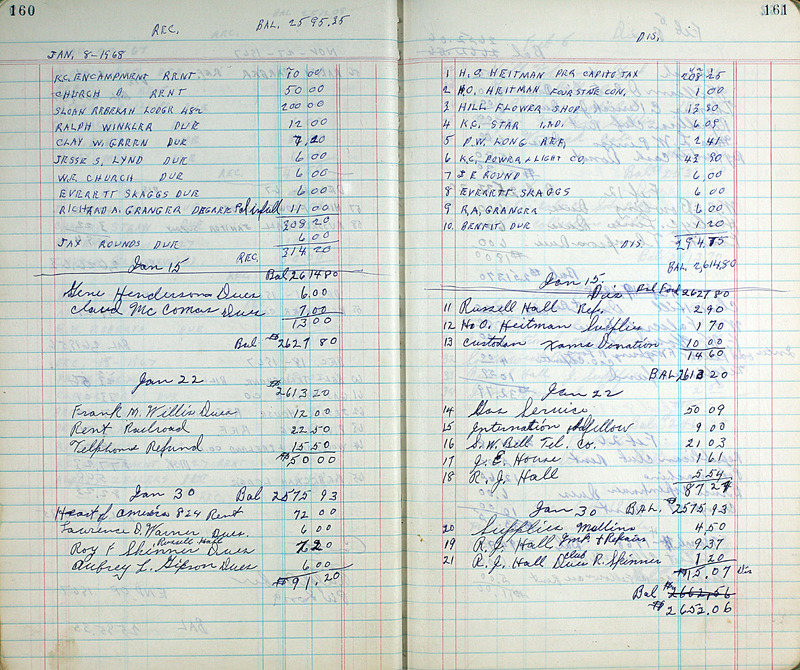 160
REC. BAL. 2595.35
JAN, 8-1968
K.C. ENCAMPMENT RENT. 70 00
CHURCH RENT 50 00
SLOAN REBEKAH LODGE 200 00
RALPH WINKLER DUE 12 00
CLAY W. GREEN DUE 7.20
JESSE S. LYND DUE 6 00
W.R. CHURCH DUE 6 00
EVERETT SKAGGS DUE 6 00
RICHARD A. GRANGER DEGREE 11 00
308 20
JAY ROUNDS DUE 6 00
REC. 314 20
Jan 15 Bal 2614 80
Gene Henderson Dues 6.00
Claud Mc Comas Dues 7.00
13 00
Bal $2627 80
Jan 22 $2613 20
Frank M. Willis Dues 12 00
Rent Railroad 22 50
Telphone Refund 15 50
$50 00
Jan 30 Bal 2575 93
Heart of america 824 Rent 72 00
Lawrence D. Warner Dues. 6 00
Roy F Skinner Dues Russell Hall 7 20
Aubrey L. Gipson Dues 6 00
$91.20
161
DIS.
1 H.O. HEITMAN PER CAPITO TAX 208 25
2 H.O. HEITMAN FOUR STATE CON. 1 00
3 HILL FLOWER SHOP 13 80
4 K.C. STAR I.AD. 6 09
5 P.W. LONG REF, 2 41
6 K.C. POWER & LIGHT CO. 43 80
7 J E ROUND 6.00
8 EVERETT SKAGGS 6 00
9 R.A. GRANGER 6 00
10. BENFIT DUE 1 20
DIS. 294.75
BAL 2,614,80
Jan 15
Dis Bal Ford 2627 80
11 Russell Hall Ref. 2 90
12 H.O. Heitman Supplies 1 70
13 custodan xame Donation 10 00
14 60
BAL 2613 20
Jan 22
14 Gas Service 50 09
15 Internation Oddfellow 9 00
16 S.W. Bell Tel. Co. 21 03
17 J.E. House 1 61
18 R.J. Hall 5 54
87 27
Jan 30 BAL. $2575 93
20 Supplies Mollins 4 50
19 R.J. Hall Imp + Repairs 9 37
21 R.J. Hall club Dues R. Skinner 1 20
$15.07 Dis
Bal $2662,56
$2652.06